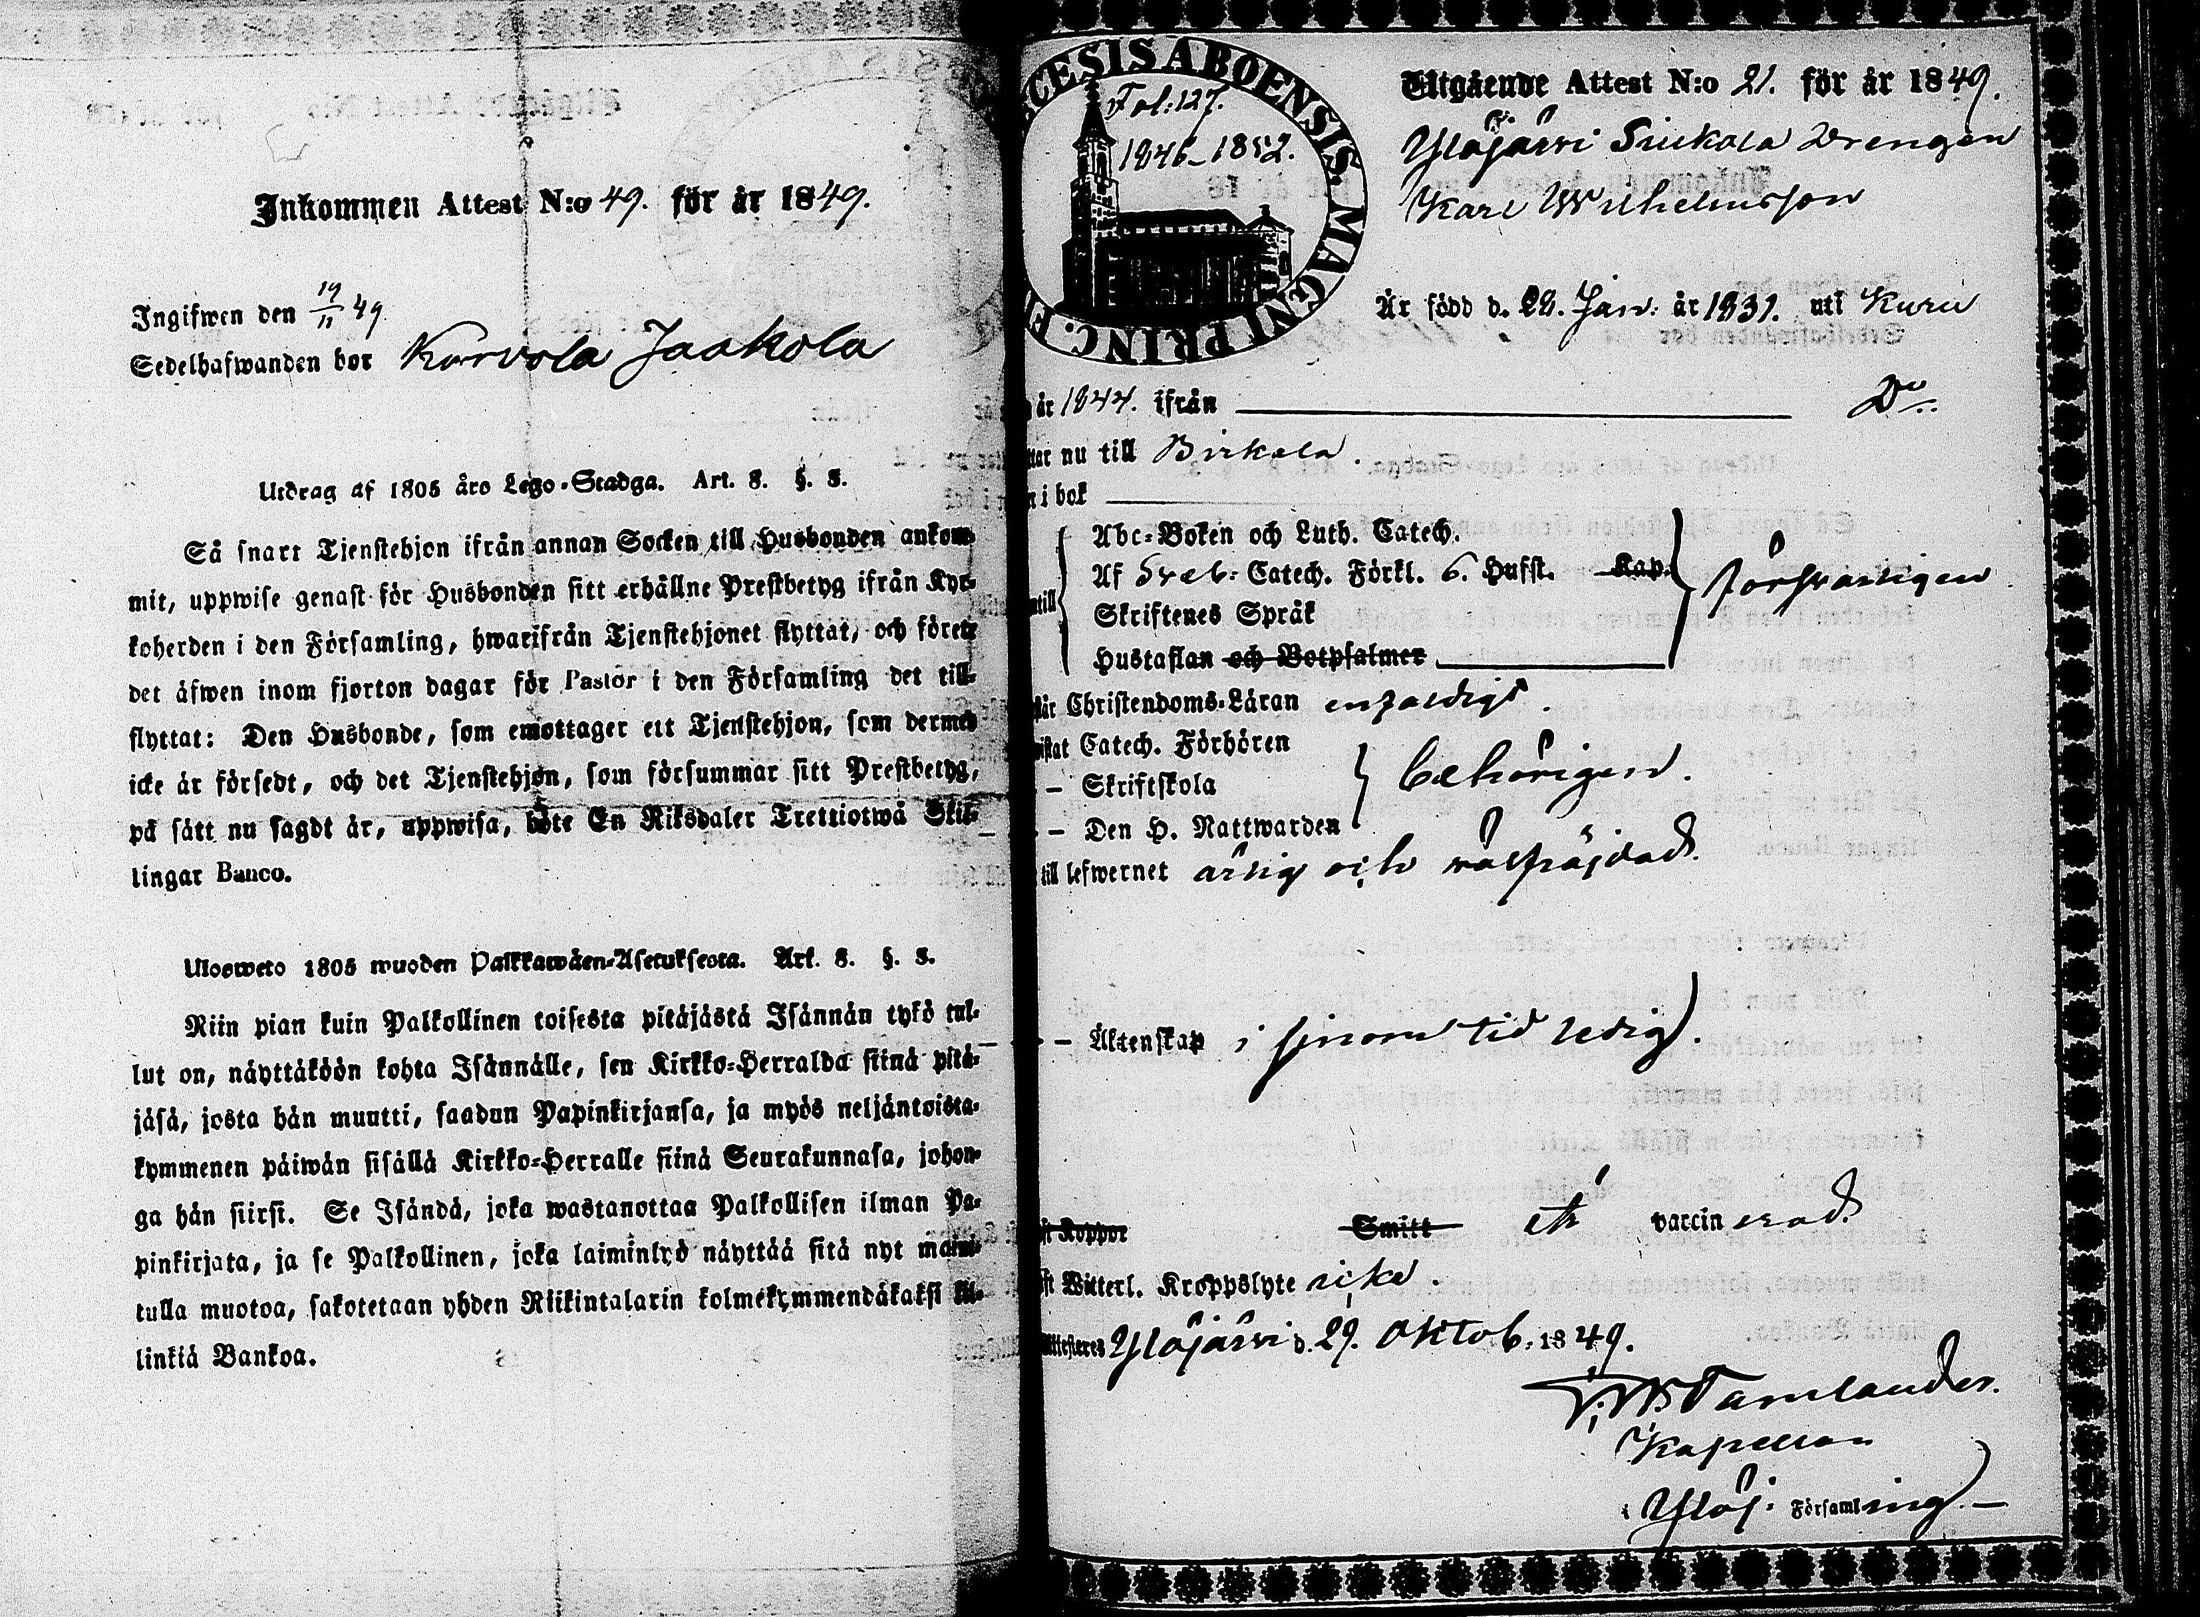 Inkommen Attest N:o 49. för år 1849.
Ingifwen den 19/11 49
Sedelhafwanden bor Korvola Jaakola
Utdrag af 1805 års Lego-Stadga. Art. 8. §. 3.
Så snart Tjenstehjon ifrån annan Socken till Husbonden ankom-
mit, uppwise genast för Husbonden sitt erhållne Prestbetyg ifrån Kyr-
koherden i den Församling, hwarifrån Tjenstehjonet flyttat, och förete
det äfwen inom fjorton dagar för Pastor i den Församling det till-
flyttat: Den Husbonde, som emottager ett Tjenstehjon, som dermed
icke är försedt, och det Tjenstehjon, som försummar sitt Prestbetyg,
på sätt nu sagdt är, uppwisa, böte En Riksdaler Trettiotwå Skil-
lingar Banco.
Ulosweto 1805 wuoden Palkkawäen-Asetuksesta. Art. 8. §. 3.
Niin pian kuin Palkollinen toisesta pitäjästä Isännän tykö tul-
lut on, näyttäköön kohta Isännälle, sen Kirkko-Herralda siinä pitä-
jäsä, josta hän muutti, saadun Papinkirjansa, ja myös neljäntoista-
kymmenen päiwän sisällä Kirkko-Herralle siinä Seurakunnasa, johon-
ga hän siirsi. Se Isändä, joka wastanottaa Palkollisen ilman Pa-
pinkirjata, ja se Palkollinen, joka laiminlyö näyttää sitä nyt maini-
tulla muotoa, sakotetaan yhden Riikintalarin kolmekymmendäkaksi kil-
linkiä Bankoa.
CESIS ABOENSIS. MAGNI PRINC. F
Fol: 127.
1846-1852.
Utgående Attest N:o 21. för år 1849.
Ylöjärvi Siukola Drengen
Karl Wilhelmsson
Är född d. 28. Jan. år 1831. uti Kuru
år 1844. ifrån D:o
nu till Birkala.
i bok
Abc-Boken och Luth. Catech.
Af Sveb: Catech. Förkl. 6. Hufst. Kap.
Skriftenes Språk
Hustaflan och Botpsalmer
försvarligen
Christendoms-Läran enfaldigt.
Catech. Förhören
– Skriftskola
– Den H. Nattwarden
behörigen.
till lefwernet ärlig och välfräjdad.
– Äktenskap i sinom tid ledig.
Koppor Smitt är vaccinerad.
Witterl. Kroppslyte icke.
Attesteres Ylöjärvi d. 29. Oktob. 1849.
Tamlander.
Kapellan
i Ylöj. Församling.